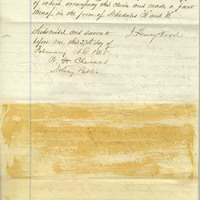 of which accompany this claim and made a part
thereof in the form of Schedules "A" and B.
Subscribed and sworn to
before me this 27th day of
February A.D. 1865
J. Henry Wood
Notary Public